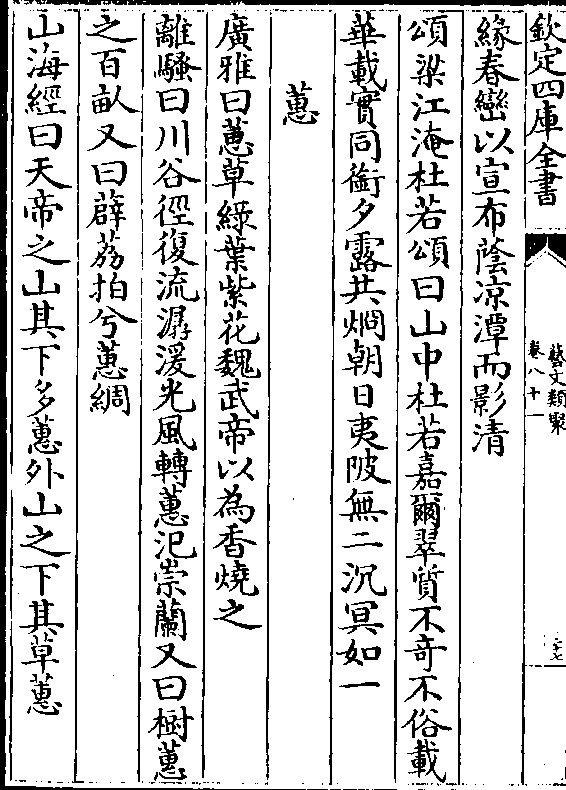 欽定四庫全書
藝文類聚
卷八十一
緣春巒以宣布蔭凉潭而影清
頌梁江淹杜若頌曰山中杜若嘉爾翠質不奇不俗載
華載實同銜夕露共烱朝日夷陂無二沉冥如一
蕙
廣雅曰蕙草綠葉紫花魏武帝以為香燒之
離騷曰川谷徑復流潺湲光風轉蕙汜崇蘭又曰樹蕙
之百畝又曰薜荔拍兮蕙綢
山海經曰天帝之山其下多蕙外山之下其草蕙